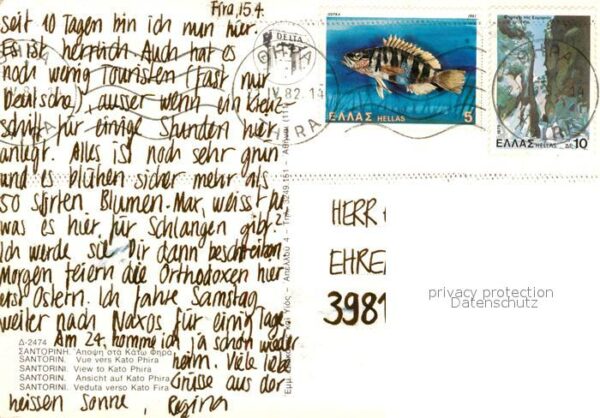 Fira 15.4.
seit 10 Tagen bin ich nun hier.
Es ist herrlich. Auch hat es
noch wenig Touristen (fast nur
Deutsche), ausser wenn ein Kreuz-
schiff für einige Stunden hier
anlegt. Alles ist noch sehr grün
und es blühen sicher mehr als
50 Sorten Blumen. Mar, weisst Du
was es hier für Schlangen gibt?
Ich werde sie Dir dann beschreiben.
Morgen feiern die Orthodoxen hier
erst Ostern. Ich fahre Samstag
weiter nach Naxos für einig Tage.
Am 24. komme ich ja schon wieder
heim. Viele liebe
Grüsse aus der
heissen Sonne, Regina
Δ-2474
ΣΑΝΤΟΡΙΝΗ. Άποψη στα Κάτω Φηρά
SANTORIN. Vue vers Kato Phira
SANTORINI. View to Kato Phira
SANTORIN. Ansicht auf Kato Phira
SANTORINI. Veduta verso Kato Fira
DELTA
Απελλού 4 – Τηλ. 3249.151 - Αθήναι
ΘΗΡΑ
IV.82.14
THIRA
5
ΕΛΛΑΣ HELLAS
ΕΛΛΑΣ HELLAS ΔΡ. 10
HERR
EHRE
3981
privacy protection
Datenschutz